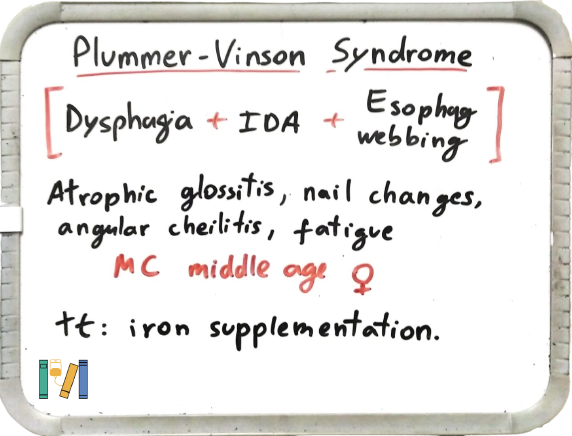 Plummer-Vinson Syndrome
[Dysphagia + IDA + Esophag webbing]
Atrophic glossitis, nail changes,
angular cheilitis, fatigue
MC middle age ♀
tt: iron supplementation.